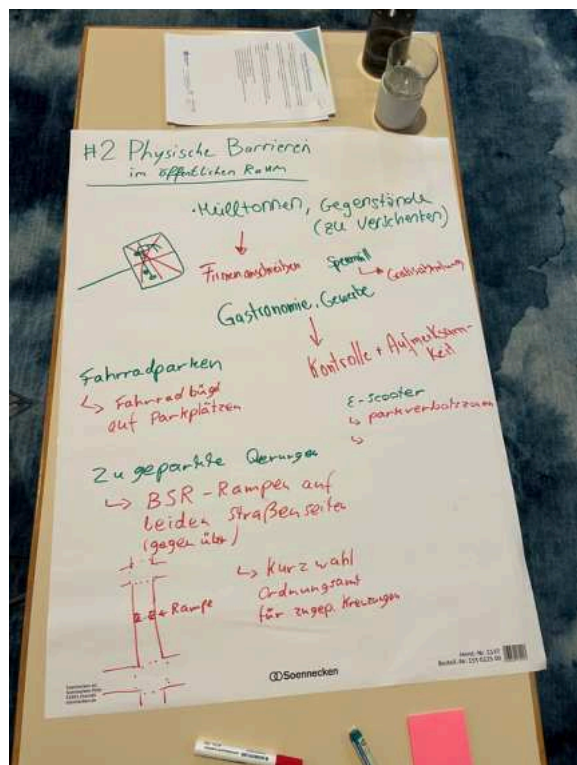 #2 Physische Barrieren
im öffentlichen Raum
• Mülltonnen, Gegenstände
(zu verschenken)
Firmen anschreiben
Sperrmüll
↳ Gratisabholung
Gastronomie, Gewerbe
Kontrolle + Aufmerksam-
keit
Fahrradparken
↳ Fahrradbügel
auf Parkplätzen
E-Scooter
↳ parkverbotszonen
↳
Zugeparkte Querungen
↳ BSR-Rampen auf
beiden Straßenseiten
(gegenüber)
↳ Kurzwahl
Ordnungsamt
für zugep. Kreuzungen
← Rampe
Soennecken